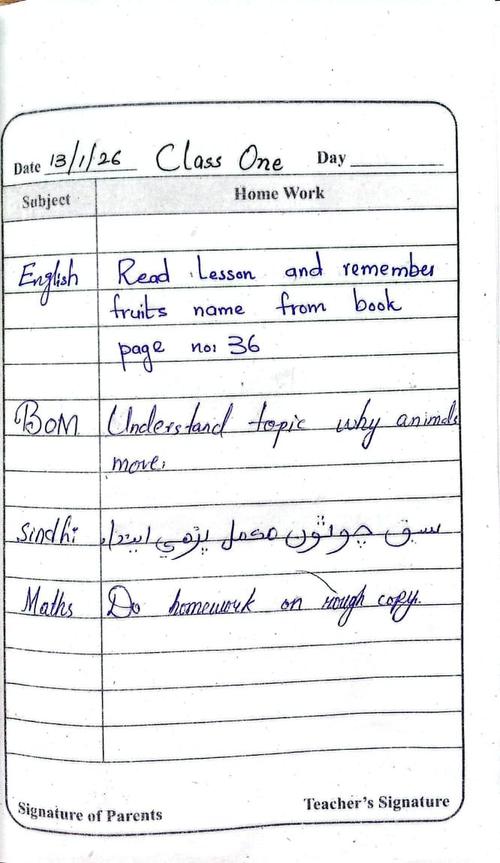 Date 13/1/26 Class One Day
Subject Home Work
English Read Lesson and remember
fruits name from book
page no: 36
BOM Understand topic why animals
move.
Sindhi سبق چوٿون مڪمل پڙهي ايندا.
Maths Do homework on rough copy.
Signature of Parents Teacher's Signature